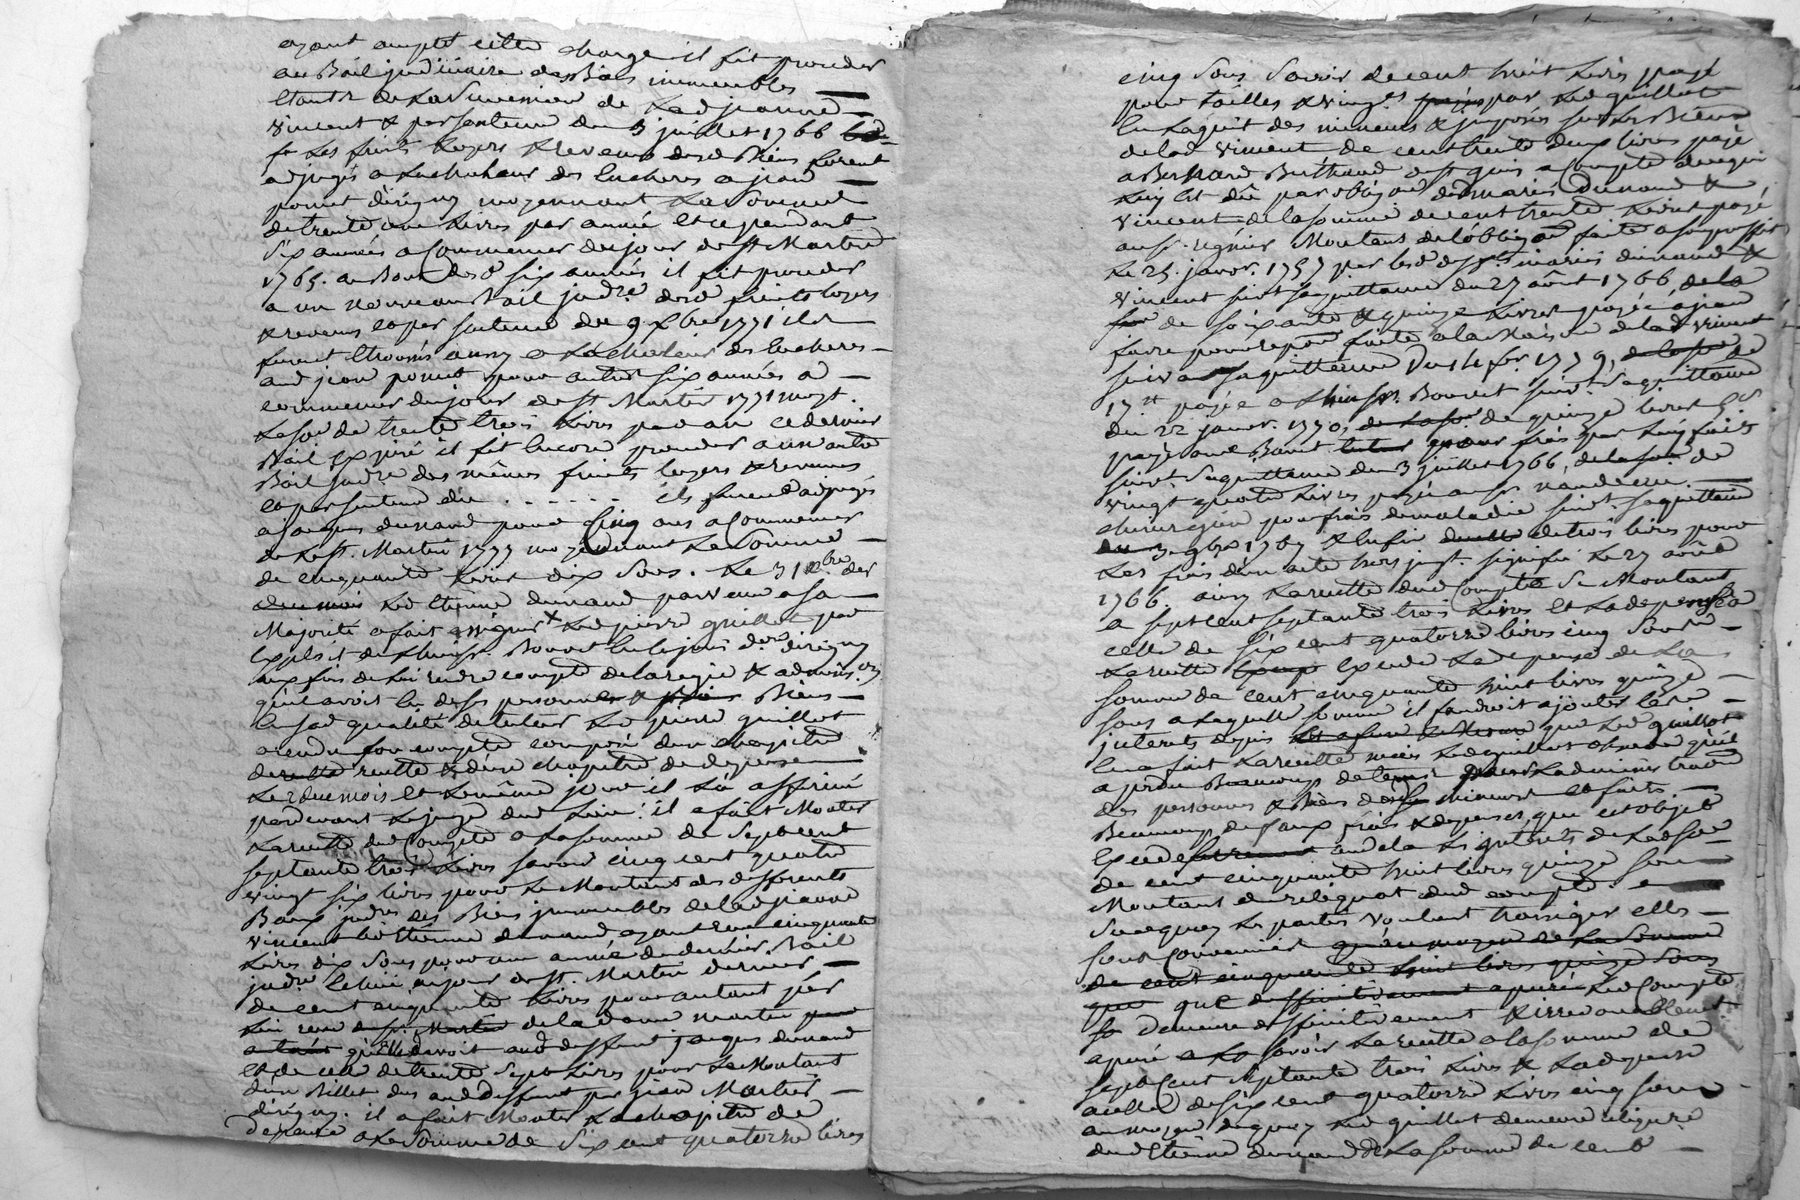 ayant accepté cette charge il fit proceder
au Bail judiciaire des Biens immeubles
étants de la succession de lad jeanne
vincent & par sentence du 3 juillet 1766
les fruits loyers & revenus desd Biens furent
adjugés a la chaleur des encheres a jean
ponnet d'irigny moyennant la somme
de trente une livres par année et ce pendant
six années a commencer du jour de st Martin
1765. au Bout des d six années il fit proceder
a un nouveau Bail judre desd fruits loyers
& revenus et par sentence du 9 xbre 1771 ils
furent trouvés aussy a la chaleur des encheres
aud jean ponnet pour autres six années a
commencer du jour de st Martin 1771 moyt.
la so de trente trois livres par an ce dernier
Bail expiré il fit encore proceder a un autre
Bail judre des mêmes fruits loyers & revenus
et par sentence du . . . . . . ils furent adjugés
a jacques dunand pour cinq ans a commencer
de la st. Martin 1777 moyennant la somme
de cinquante livres dix sous. le 31 xbre der
led Etienne dunand parvenu a sa
Majorité a fait assigner led pierre guillot par
exploit de Bonnet en la jurisd. ord d'irigny
aux fins de lui rendre compte de la regie & adminis. on
qu'il avoit eu de ses personne & Biens
en sad qualité de tuteur led pierre guillot
a rendu son compte composé d'un chapitre
de recette & d'un chapitre de depense
le 2 du mois et le même jour il l'a affirmé
pardevant le juge dud lieu: il a fait Monter
la recette dud Compte a la somme de sept cent
septante trois livres savoir cinq cent quatre
vingt six livres pour le Montant des differents
Baux judres des Biens immeubles de lad jeanne
vincent led Etienne dunand ayant reçu cinquante
livres dix sous pour une année du dernier Bail
judre echue au jour de st. Martin dernier
de cent cinquante livres pour autant par
lui reçu de la dame martin
qu'elle devoit aud deffunt jacques dunand
et de celle de trente sept livres pour le Montant
d'un Billet deu aud deffunt par jean Martin
d'irigny. il a fait Monter le chapitre de
depense a la somme de six cent quatorze livres
cinq sous savoir de cent huit livres payé
pour tailles & vingt par led guillot
en l'acquit des mineurs & imposés sur les Biens
de lad vincent de cent trente deux livres payé
a Bernard Berthaud a compte de ce qui
luy est dû par oblig on des mariés Dunand &
vincent de la somme de cent trente livres payé
au sr. regnier Montant de l'oblig on faite a son proffit
le 25. janvr. 1757 par lesd mariés dunand &
vincent suivt sa quittance du 27 août 1766, de la
so de soixante & quinze livres payée a jean
favre pour repon faite a la Maison de lad vincent
suivt sa quittance du 14 fvr 1779, de
17 tt payée a Bonnet suivt. sa quittance
du 22 janvr. 1770, de quinze livres 5 s
payé aud Bonnet pour frais par luy faits
suivt. sa quittance du 3 juillet 1766, de la so de
vingt quatre livres payé au sr
chirurgien pour frais de maladie suivt. sa quittance
du 3 9bre 1767 & enfin de trois livres pour
les frais d'un acte hors just. signifié le 27 août
1766, ainsy la recette dud Compte se Montant
a sept cent septante trois livres et la depense a
celle de six cent quatorze livres cinq sous
la recette excede la depense de la
somme de cent cinquante huit livres quinze
sous a laquelle somme il faudroit ajouter les
interets depuis que led guillot
en a fait la recette mais led guillot observe qu'il
a perdu Beaucoup de tems pour l'administration
des personnes & Biens desd mineurs et faits
Beaucoup de faux frais & depenses, que cet objet
excede au dela les interets de lad so
de cent cinquante huit livres quinze sous
Montant du reliquat dud compte.
Surquoy les parties voulant transiger elles
sont convenües qu'au moyen de la somme
de cent cinquante huit livres quinze sous
que deffinitivement apuré led Compte
demeure deffinitivement & irrevocablement
apuré savoir la recette a la somme de
sept Cent septante trois livres & la depense
a celle de six cent quatorze livres cinq sous
au moyen de quoy led guillot demeure
dud Etienne dunand de la somme de cent